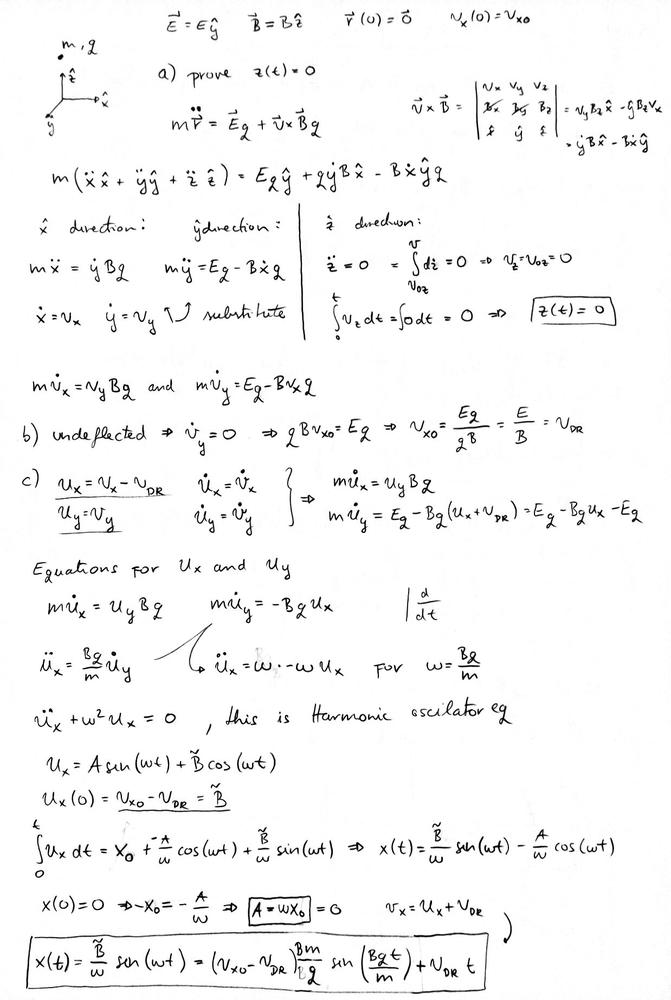 E⃗ = Eŷ   B⃗ = Bẑ   r⃗(0) = 0⃗   v_x(0) = v_x0
m, q
ẑ
x̂
ŷ
a) prove z(t) = 0
m r̈⃗ = E⃗q + v⃗ × B⃗q
v⃗ × B⃗ = | v_x v_y v_z | B_x B_y B_z | x̂ ŷ ẑ | = v_y B_z x̂ - ŷ B_z v_x
= ẏBx̂ - Bẋŷ
m(ẍx̂ + ÿŷ + z̈ẑ) = Eqŷ + qẏBx̂ - Bẋŷq
x̂ direction:   ŷ direction:   ẑ direction:
mẍ = ẏBq   mÿ = Eq - Bẋq   z̈ = 0 = ∫_{v_0z}^{v} dż = 0 ⇒ v_z = v_0z = 0
ẋ = v_x   ẏ = v_y   substitute   ∫_0^t v_z dt = ∫0 dt = 0 ⇒ z(t) = 0
m v̇_x = v_y Bq and m v̇_y = Eq - B v_x q
b) undeflected ⇒ v̇_y = 0 ⇒ qBv_x0 = Eq ⇒ v_x0 = Eq/qB = E/B = v_DR
c) u_x = v_x - v_DR   u̇_x = v̇_x   } ⇒   m u̇_x = u_y Bq
u_y = v_y   u̇_y = v̇_y   m u̇_y = Eq - Bq(u_x + v_DR) = Eq - Bq u_x - Eq
Equations for u_x and u_y
m u̇_x = u_y Bq   m u̇_y = -Bq u_x   | d/dt
ü_x = Bq/m u̇_y   ↳ ü_x = ω · -ω u_x for ω = Bq/m
ü_x + ω² u_x = 0 , this is Harmonic oscilator eq
u_x = A sin(ωt) + B̃ cos(ωt)
u_x(0) = v_x0 - v_DR = B̃
∫_0^t u_x dt = x_0 + -A/ω cos(ωt) + B̃/ω sin(ωt) ⇒ x(t) = B̃/ω sin(ωt) - A/ω cos(ωt)
x(0) = 0 ⇒ -x_0 = -A/ω ⇒ A = ωx_0 = 0   v_x = u_x + v_DR
x(t) = B̃/ω sin(ωt) = (v_x0 - v_DR) Bm/q sin(Bqt/m) + v_DR t